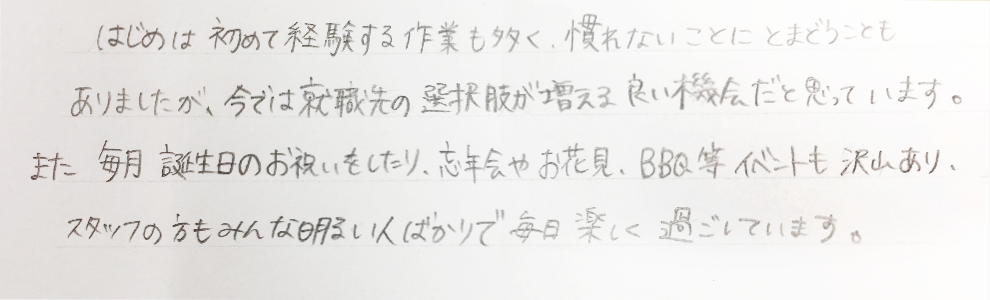 はじめは初めて経験する作業も多く、慣れないことにとまどうことも
ありましたが、今では就職先の選択肢が増える良い機会だと思っています。
また毎月誕生日のお祝いをしたり、忘年会やお花見、BBQ等イベントも沢山あり、
スタッフの方もみんな明るい人ばかりで毎日楽しく過ごしています。